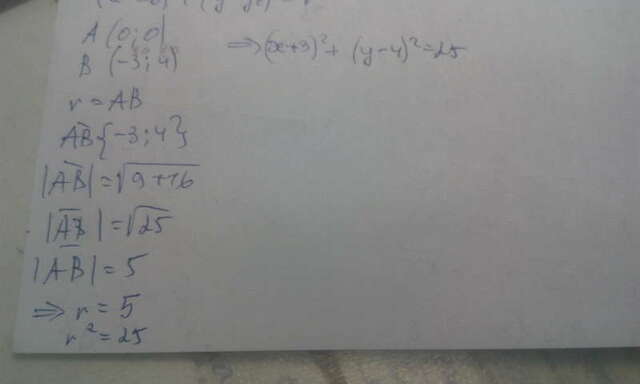 A (0; 0)
B (-3; 4)
⇒ (x+3)² + (y-4)² = 25
r = AB
AB {-3; 4}
|AB| = √9+16
|AB| = √25
|AB| = 5
⇒ r = 5
r² = 25